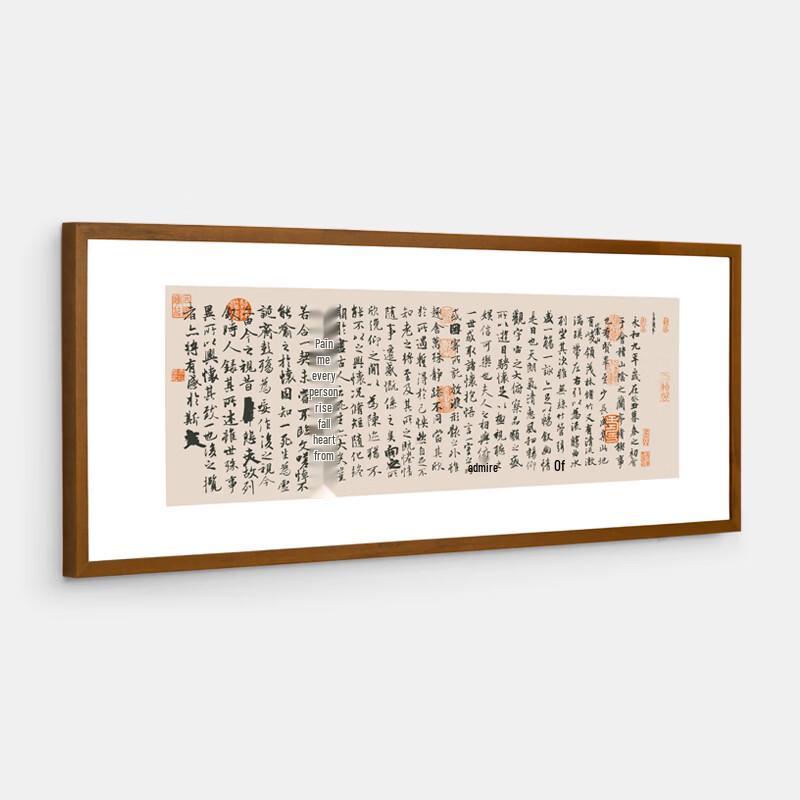 永和九年歲在癸丑暮春之初會
于會稽山陰之蘭亭脩稧事
也羣賢畢至少長咸集此地
有崇山峻領茂林脩竹又有清流激
湍暎帶左右引以為流觴曲水
列坐其次雖無絲竹管弦
盛一觴一詠亦足以暢敘幽情
Of
是日也天朗氣清惠風和暢仰
觀宇宙之大俯察品類之盛
所以遊目騁懷足以極視聽
娛信可樂也夫人之相與俯
admire
一世或取諸懷抱悟言一室之
或因寄所託放浪形骸之外雖
趣舍萬殊靜躁不同當其欣
於所遇蹔得於己怏然自足不
知老之將至及其所之既惓情
隨事遷感慨係之矣向之所
欣俛仰之閒以為陳迹猶不
能不以之興懷況脩短隨化終
期於盡古人云死生亦大矣豈
Pain
me
every
person
rise
fall
heart
from
若合一契未嘗不臨文嗟悼不
能喻之於懷固知一死生為虛
誕齊彭殤為妄作後之視今
亦由今之視昔悲夫故列
敘時人錄其所述雖世殊事
異所以興懷其致一也後之攬
者亦將有感於斯